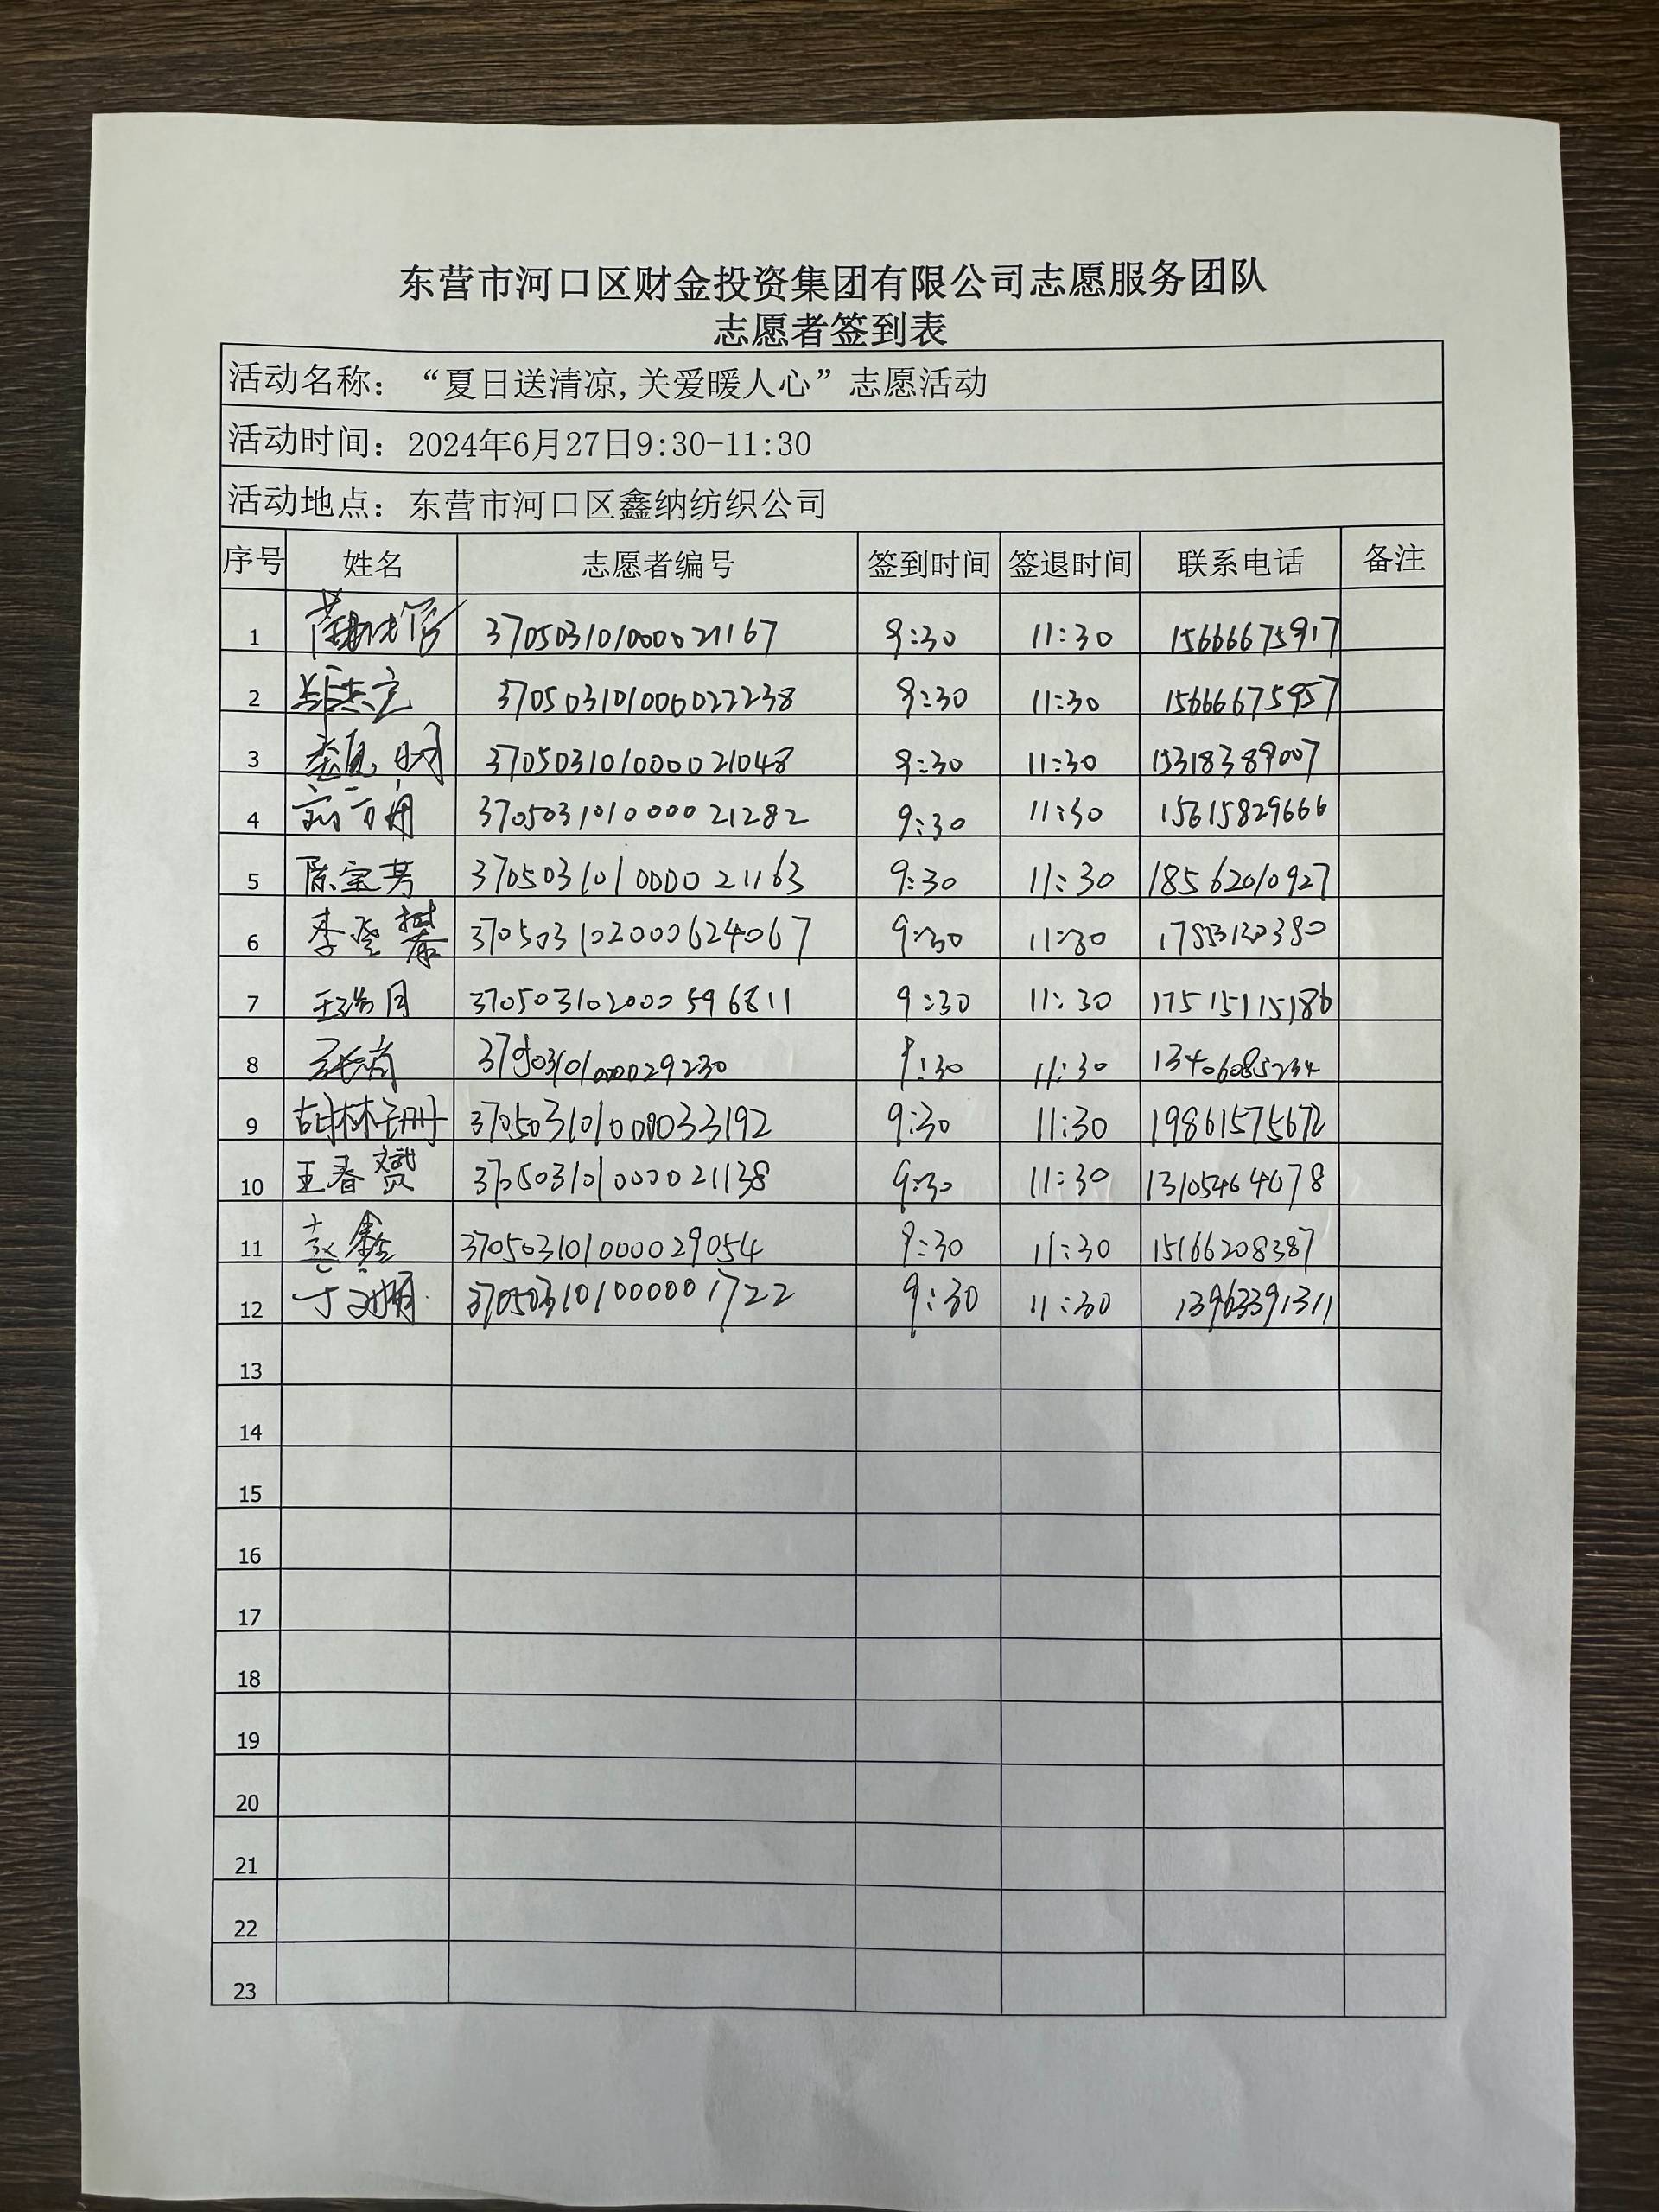 东营市河口区财金投资集团有限公司志愿服务团队
志愿者签到表
活动名称：“夏日送清凉,关爱暖人心”志愿活动
活动时间：2024年6月27日9:30-11:30
活动地点：东营市河口区鑫纳纺织公司
序号 姓名 志愿者编号 签到时间 签退时间 联系电话 备注
1 3705031010000021167 9:30 11:30 15666675917
2 3705031010000022238 9:30 11:30 15666675957
3 3705031010000021048 9:30 11:30 15318389007
4 3705031010000021282 9:30 11:30 15615829666
5 陈宝芳 3705031010000021163 9:30 11:30 18562010927
6 3705031020000624067 9:30 11:30
7 3705031020000596811 9:30 11:30
8 3705031010000029230 9:30 11:30 13406085234
9 3705031010000033192 9:30 11:30 19861575672
10 王春赟 3705031010000021138 9:30 11:30 13105464678
11 赵鑫 3705031010000029054 9:30 11:30 15166208387
12 9:30 11:30 13963391311
13
14
15
16
17
18
19
20
21
22
23